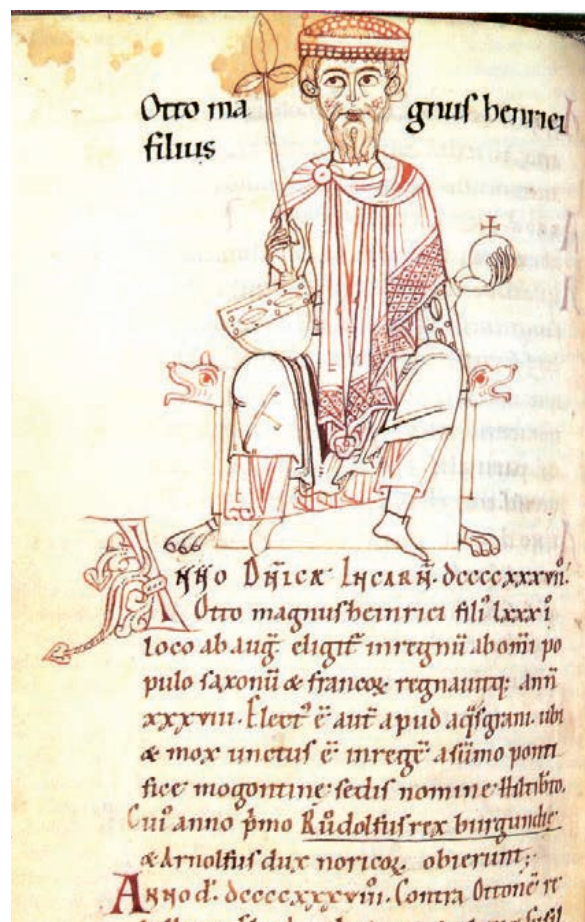 Otto magnuſ henrici
filius
Anno Dn̄icæ Incarn̄. dccccxxxvii.
Otto magnuſ heinrici filiꝰ lxxxiͦ
loco ab aug̃. eligit̃ in regnū ab om̄i po
pulo saxonū & francoꝝ regnauitq; ann̄
xxxviii. Elect᾿ ē aut̃ apud aq̃ſgrani. ubi
& mox unctuſ ē in regē a sūmo ponti
fice mogontine sedis nomine Hiltibto.
Cuiᵒ anno p̄mo Růdolfuſ rex burgundie
& Arnolfus dux noricoꝝ. obierunt;
Anno d᾿. dccccxxxviiiͦ. Contra Ottonē re